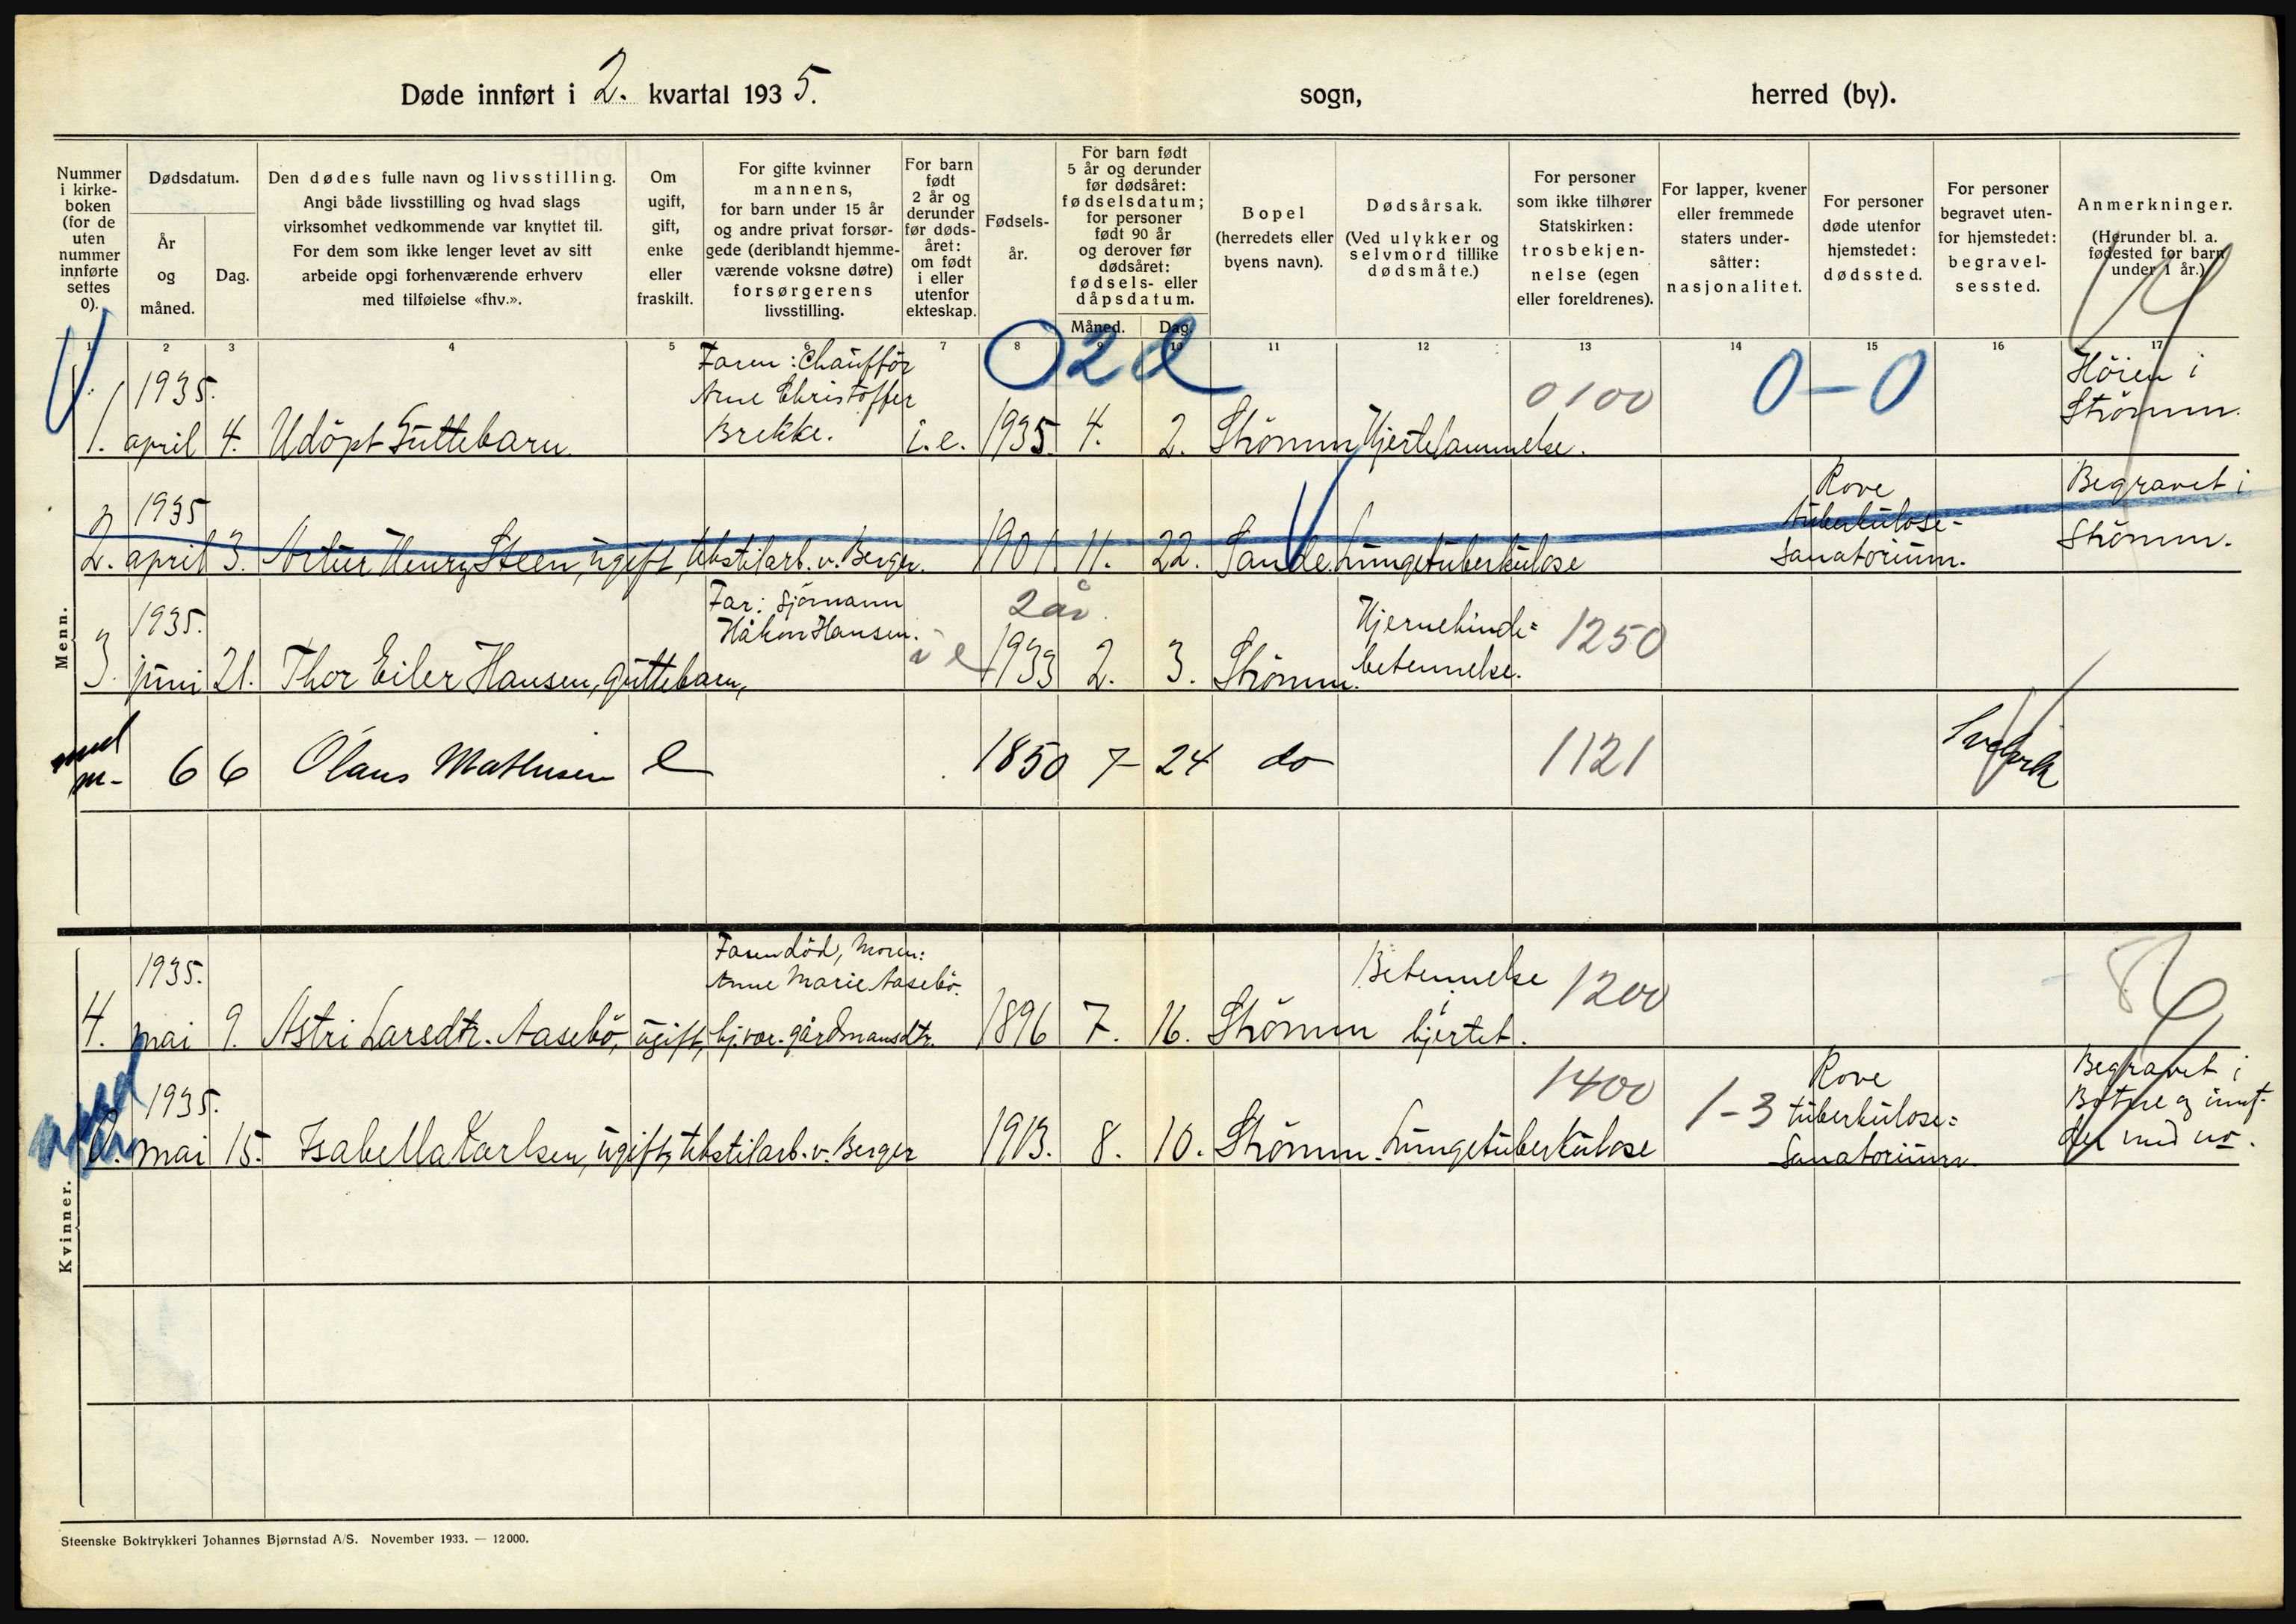 Døde innført i 2. kvartal 1935.
sogn,
herred (by).
Nummer
i kirke-
boken
(for de
uten
nummer
innførte
settes
0).
Dødsdatum.
År
og
måned.
Dag.
Den dødes fulle navn og livsstilling.
Angi både livsstilling og hvad slags
virksomhet vedkommende var knyttet til.
For dem som ikke lenger levet av sitt
arbeide opgi forhenværende erhverv
med tilføielse «fhv.».
Om
ugift,
gift,
enke
eller
fraskilt.
For gifte kvinner
mannens,
for barn under 15 år
og andre privat forsør-
gede (deriblandt hjemme-
værende voksne døtre)
forsørgerens
livsstilling.
For barn
født
2 år og
derunder
før døds-
året:
om født
i eller
utenfor
ekteskap.
Fødsels-
år.
For barn født
5 år og derunder
før dødsåret:
fødselsdatum;
for personer
født 90 år
og derover før
dødsåret:
fødsels- eller
dåpsdatum.
Måned.
Dag.
Bopel
(herredets eller
byens navn).
Dødsårsak.
(Ved ulykker og
selvmord tillike
dødsmåte.)
For personer
som ikke tilhører
Statskirken:
trosbekjen-
nelse (egen
eller foreldrenes).
For lapper, kvener
eller fremmede
staters under-
såtter:
nasjonalitet.
For personer
døde utenfor
hjemstedet:
dødssted.
For personer
begravet uten-
for hjemstedet:
begravel-
sessted.
Anmerkninger.
(Herunder bl. a.
fødested for barn
under 1 år.)
1 2 3 4 5 6 7 8 9 10 11 12 13 14 15 16 17
02d
Menn.
1935.
Faren: Chauffør
Arne Christoffer
Brekke.
0100
0-0
Höien i
Strömm.
1. april 4. Udöpt Guttebarn i.e. 1935. 4. 2. Strömm Hjertelammelse.
1935
Rove
tuberkulose-
Sanatorium.
Begravet i
Strömm.
2. april 3. Artur Henry Steen, ugift, tekstilarb. v. Berger. 1901. 11. 22. Sande. Lungetuberkulose
1935.
Far: Sjömann
Håkon Hansen.
2 år
Hjernehinde=
betennelse.
1250
3. juni 21. Thor Eiler Hansen, guttebarn, i e 1933 2. 3. Strömm.
med
m- 6 6 Olaus Mathisen e 1850 7- 24 do 1121 Svelvik
Kvinner.
1935.
Faren död, Moren:
Anne Marie Aasebö.
Betennelse
i
hjertet.
1200
86
4. mai 9. Astri Larsdtr. Aasebö, ugift, hj.vær. gårdmansdtr. 1896 7. 16. Strömm
1935.
1400
1-3
Rove
tuberkulose=
Sanatorium
Begravet i
Botne og innf-
der med no.
0. mai 15. Isabella Karlsen, ugift, tekstilarb. v. Berger 1913. 8. 10. Strömm. Lungetuberkulose
Steenske Boktrykkeri Johannes Bjørnstad A/S. November 1933. — 12000.